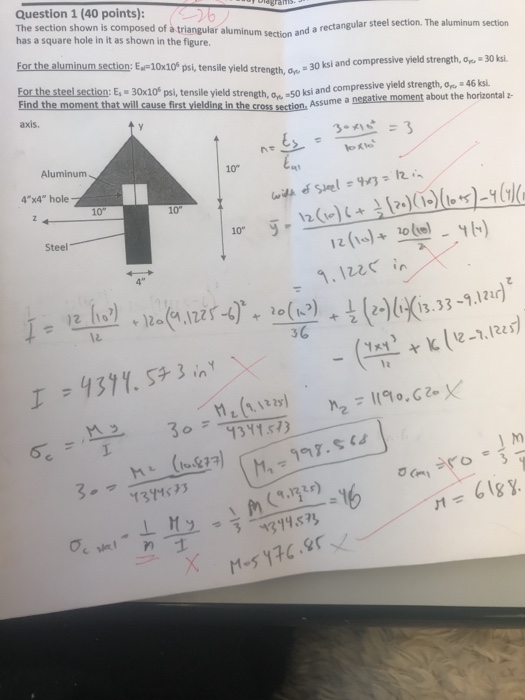 Question 1 (40 points):
-26
The section shown is composed of a triangular aluminum section and a rectangular steel section. The aluminum section
has a square hole in it as shown in the figure.
For the aluminum section: Eal=10x10⁶ psi, tensile yield strength, = 30 ksi and compressive yield strength, = 30 ksi.
For the steel section: Es = 30x10⁶ psi, tensile yield strength, =50 ksi and compressive yield strength, = 46 ksi.
Find the moment that will cause first yielding in the cross section. Assume a negative moment about the horizontal z-
axis.
Y
Aluminum
4"x4" hole
10"
10"
10"
z
10"
Steel
4"
n = Es / Eal = 30x10⁶ / 10x10⁶ = 3
width of steel = 4x3 = 12 in
ȳ = 12(10)6 + ½(20)(10)(10+5) - 4(4)(
12(10) + 20(10)/2 - 4(4)
= 9.1225 in
I = 12(10³)/12 + 120(9.1225-6)² + 20(10³)/36 + ½(20)(10)(13.33-9.1225)²
- (4x4³/12 + 16(12-9.1225)
I = 4344.573 in⁴
σc = My/I
30 = Mz(9.1225)/4344.573
Mz = 1190.620 X
30 = Mz(10.877)/4344.573
Mz = 998.568
= 50 = 1/3 M
M = 6188.
= 1/n My/I = 1/3 M(9.1225)/4344.573 = 46
X M=5476.85 X